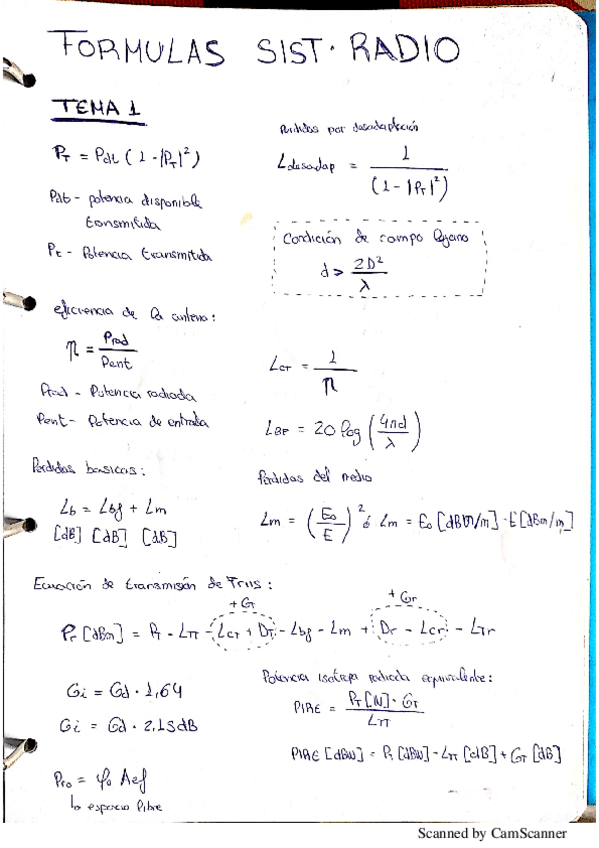 FORMULAS SIST. RADIO
TEMA 1
P_T = Pdt (1 - |ρ_T|²)
Pdt - potencia disponible
transmitida
Pt - Potencia transmitida
Perdidas por desadaptación
Ldesadap = 1 / (1 - |ρ_T|²)
Condición de campo lejano
d > 2D² / λ
eficiencia de la antena:
η = Prad / Pent
Prad - Potencia radiada
Pent - Potencia de entrada
L_CT = 1 / η
L_BF = 20 log (4πd / λ)
Perdidas basicas:
Lb = Lbf + Lm
[dB] [dB] [dB]
Pérdidas del medio
Lm = (E₀ / E)² ó Lm = E₀ [dBm/m] - E [dBm/m]
Ecuación de transmisión de Friis:
+ G_T
+ Gr
Pr [dBm] = P_T - L_TT - L_CT + D_T - Lbf - Lm + Dr - Lcr - L_Tr
Gi = Gd · 1,64
Gi = Gd · 2.15dB
Pro = φ₀ Aef
↳ espacio libre
Potencia isotropa radiada equivalente:
PIRE = P_T [W] · G_T / L_TT
PIRE [dBW] = P_T [dBW] - L_TT [dB] + G_T [dB]
Scanned by CamScanner